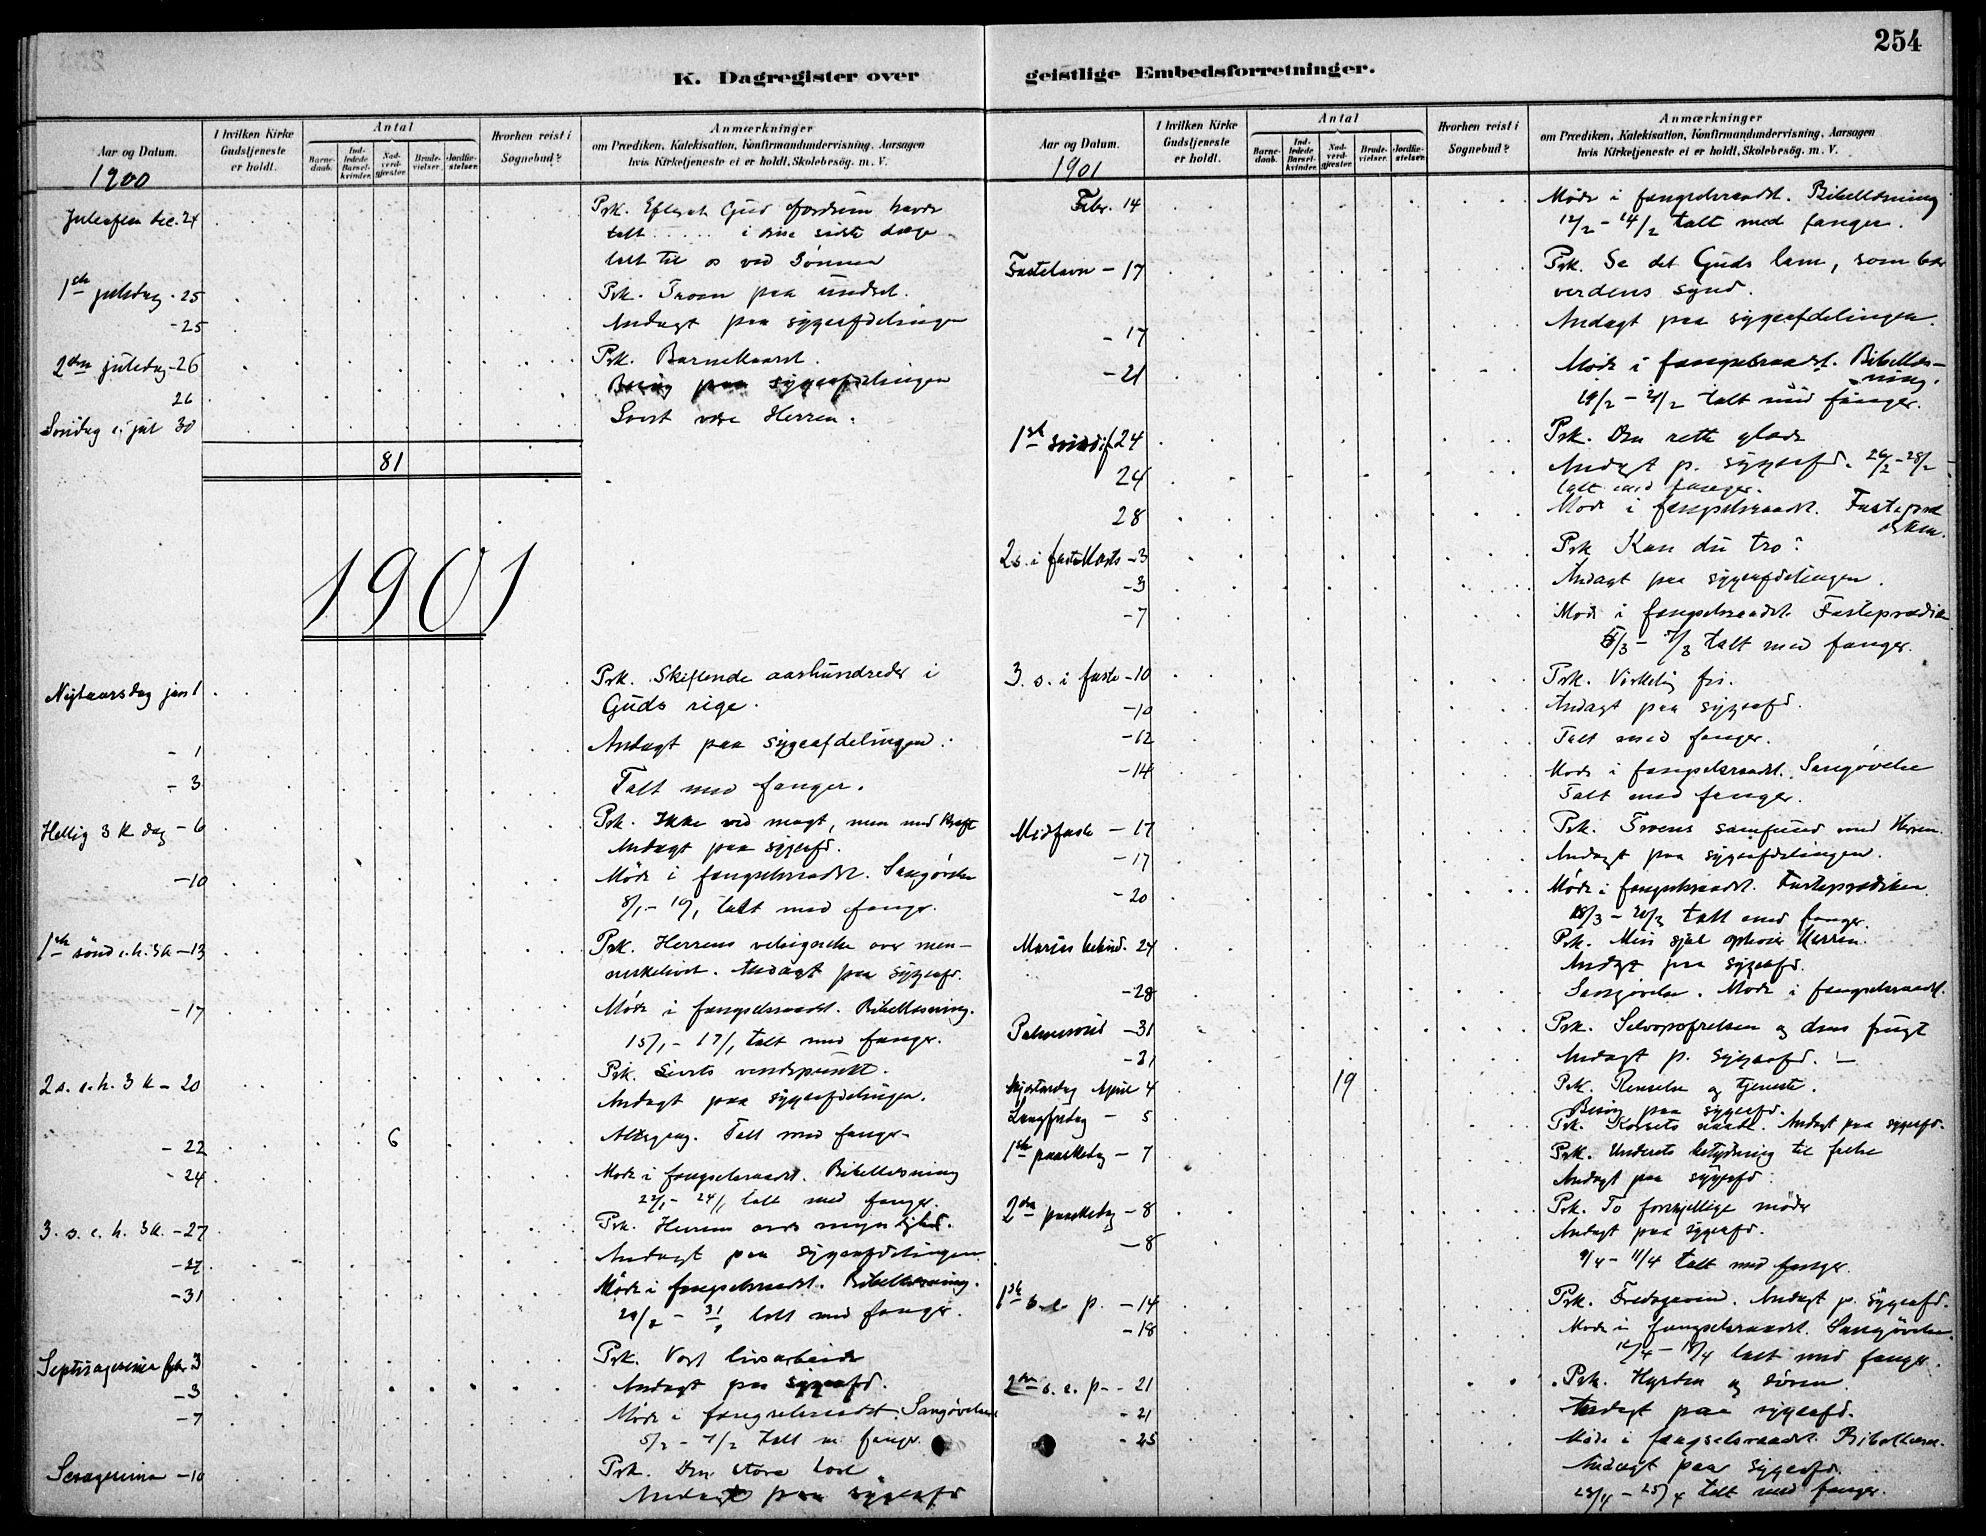 254
K. Dagregister over
geistlige Embedsforretninger.
Aar og Datum.
I hvilken Kirke Gudstjeneste er holdt.
Antal
Barnedaab.
Indledede Barselkvinder.
Nadverdgjester.
Brudevielser.
Jordfæstelser.
Hvorhen reist i Sognebud?
Anmærkninger
om Prædiken, Katekisation, Konfirmandundervisning, Aarsagen
hvis Kirketjeneste ei er holdt, Skolebesög. m. V.
1900
Juleaften dec. 24 Prk. Efterat Gud fordum havde
talt ..... i disse sidste dage
talt til os ved Sønnen
1ste juledag - 25 Prk. Troen paa undset.
- 25 Andagt paa sygeafdelingen
2den juledag - 26 Prk. Barnekaaret.
26 Besøg paa sygeafdelingen
Søndag e. jul 30 Livet være Herren.
81
1901
Nytaarsdag jan 1 Prk. Skiftende aarhundreder i
Guds rige.
- 1 Andagt paa sygeafdelingen.
- 3 Talt med fanger.
Hellig 3 K dag - 6 Prk. Ikke ved magt, men med kraft
Andagt paa sygeafd.
- 10 Møde i fængselsraadet. Sangøvelse
8/1 - 10/1 talt med fanger.
1ste sønd e. h. 3 K - 13 Prk. Herrens velsignelse over men-
neskelivet. Andagt paa sygeafd.
- 17 Møde i fængselsraadet. Bibellæsning.
15/1 - 17/1 talt med fanger.
2 s. e. h. 3 K - 20 Prk. Livets vendepunkt.
Andagt paa sygeafdelingen.
- 22 6 Altergang. Talt med fanger.
- 24 Møde i fængselsraadet. Bibellæsning
22/1 - 24/1 talt med fanger.
3. s. e. h. 3 K. - 27 Prk. Herrens ords myndighed.
- 27 Andagt paa sygeafdelingen
- 31 Møde i fængselsraadet. Bibellæsning.
talt med fanger.
Septuagesima febr 3 Prk. Vort livsarbeide
- 3 Andagt paa sygeafd.
- 7 Møde i fængselsraadet. Sangøvelse
5/2 - 7/2 talt m. fanger.
Sexagesima - 10 Prk. Den store
Andagt paa sygeafd
Aar og Datum.
I hvilken Kirke Gudstjeneste er holdt.
Antal
Barnedaab.
Indledede Barselkvinder.
Nadverdgjester.
Brudevielser.
Jordfæstelser.
Hvorhen reist i Sognebud?
Anmærkninger
om Prædiken, Katekisation, Konfirmandundervisning, Aarsagen
hvis Kirketjeneste ei er holdt, Skolebesög. m. V.
1901
Febr. 14 Møde i fængselsraadet. Bibellæsning
12/2 - 14/2 talt med fanger.
Fastelavn - 17 Prk. Se det Guds lam, som bær
verdens synd.
- 17 Andagt paa sygeafdelingen.
- 21 Møde i fængselsraadet. Bibellæs-
ning.
19/2 - 21/2 talt med fanger.
1ste sønd i f 24 Prk. Den rette glæde
24 Andagt p. sygeafd. 26/2 - 28/2
talt med fanger.
28 Møde i fængselsraadet. Fastepræ
diken.
2 s. i faste Marts - 3 Prk Kan du tro?
- 3 Andagt paa sygeafdelingen.
- 7 Møde i fængselsraadet. Fasteprædik
5/3 - 7/3 talt med fanger.
3. s. i faste - 10 Prk. Virkelig fri.
- 10 Andagt paa sygeafd.
- 12 Talt med fanger.
- 14 Møde i fængselsraadet. Sangøvelse
Talt med fanger.
Midfaste - 17 Prk. Troens samfund med Herren.
- 17 Andagt paa sygeafdelingen.
- 20 Møde i fængselsraadet. Fasteprædiken
18/3 - 20/3 talt med fanger.
Marias bebud. 24 Prk. Min sjæl ophøier Herren.
Andagt paa sygeafd.
- 28 Sangøvelse. Møde i fængselsraadet.
Palmesønd - 31 Prk. Selvopofrelsen og dens frugt
- 31 Andagt p. sygeafd.
Skjærtorsdag April 4 19 Prk. Renselse og tjeneste.
Besøg paa sygeafd.
Langfredag - 5 Prk. Korsets Andagt paa sygeafd.
1ste paaskedag - 7 Prk. Underets betydning til frelse
Andagt paa sygeafd.
2den paaskedag - 8 Prk. To forskjellige møder
- 8 Andagt paa sygeafd.
9/4 - 11/4 talt med fanger.
1ste s. e. p. - 14 Prk. Andagt p. sygeafd.
- 18 Møde i fængselsraadet. Sangøvelse.
16/4 - 18/4 talt med fanger.
2den s. e. p. - 21 Prk. Hyrden og døren.
- 21 Andagt paa sygeafd.
- 25 Møde i fængselsraadet. Bibellæsn.
Andagt paa sygeafd.
23/4 - 25/4 talt med fanger.